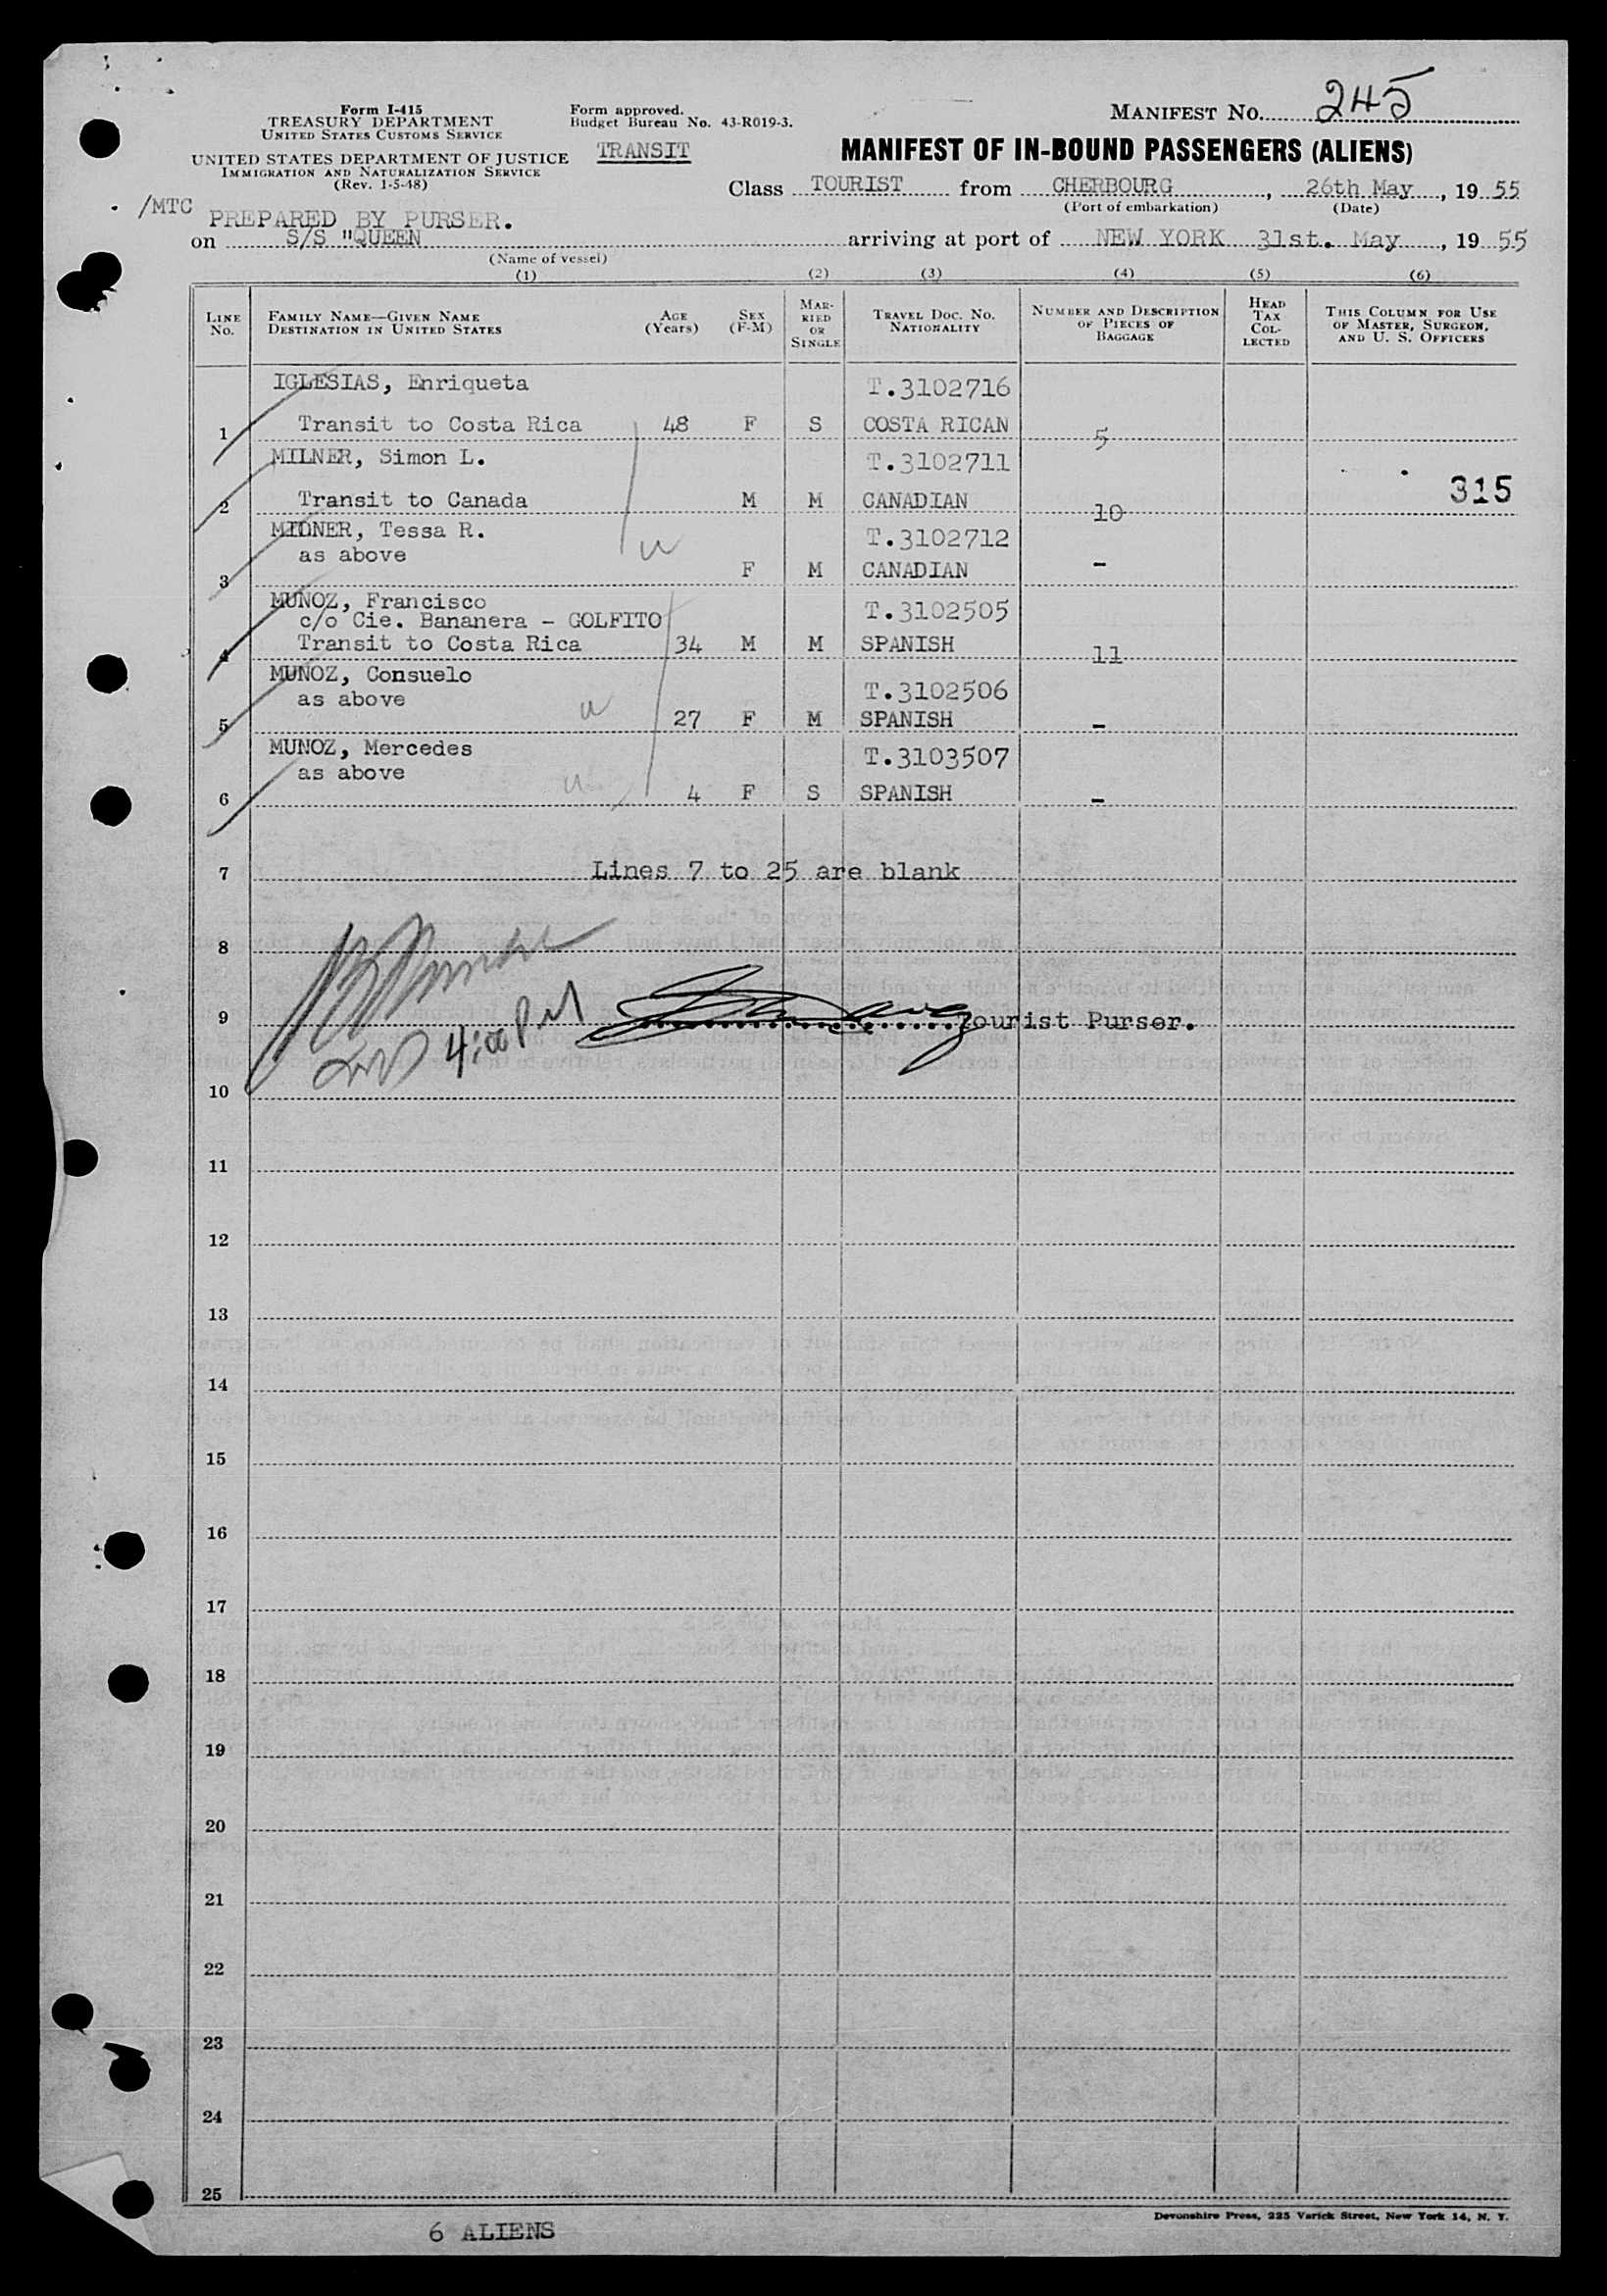 Form I-415
TREASURY DEPARTMENT
UNITED STATES CUSTOMS SERVICE
UNITED STATES DEPARTMENT OF JUSTICE
IMMIGRATION AND NATURALIZATION SERVICE
(Rev. 1-5-48)
Form approved.
Budget Bureau No. 43-R019-3.
TRANSIT
MANIFEST NO. 245
MANIFEST OF IN-BOUND PASSENGERS (ALIENS)
Class TOURIST from CHERBOURG, 26th May, 1955
(Port of embarkation) (Date)
/MTC PREPARED BY PURSER.
on S/S "QUEEN arriving at port of NEW YORK 31st. May, 1955
(Name of vessel)
(1) (2) (3) (4) (5) (6)
LINE No. FAMILY NAME—GIVEN NAME DESTINATION IN UNITED STATES AGE (Years) SEX (F-M) MARRIED OR SINGLE TRAVEL DOC. NO. NATIONALITY NUMBER AND DESCRIPTION OF PIECES OF BAGGAGE HEAD TAX COLLECTED THIS COLUMN FOR USE OF MASTER, SURGEON, AND U. S. OFFICERS
IGLESIAS, Enriqueta T.3102716
1 Transit to Costa Rica 48 F S COSTA RICAN 5
MILNER, Simon L. T.3102711
2 Transit to Canada M M CANADIAN 10 315
MILNER, Tessa R. T.3102712
as above
3 F M CANADIAN -
MUNOZ, Francisco T.3102505
c/o Cie. Bananera - GOLFITO
4 Transit to Costa Rica 34 M M SPANISH 11
MUNOZ, Consuelo T.3102506
as above
5 27 F M SPANISH -
MUNOZ, Mercedes T.3103507
as above
6 4 F S SPANISH -
7 Lines 7 to 25 are blank
8
9 Tourist Purser.
4:00 PM
10
11
12
13
14
15
16
17
18
19
20
21
22
23
24
25
6 ALIENS
Devonshire Press, 225 Varick Street, New York 14, N. Y.